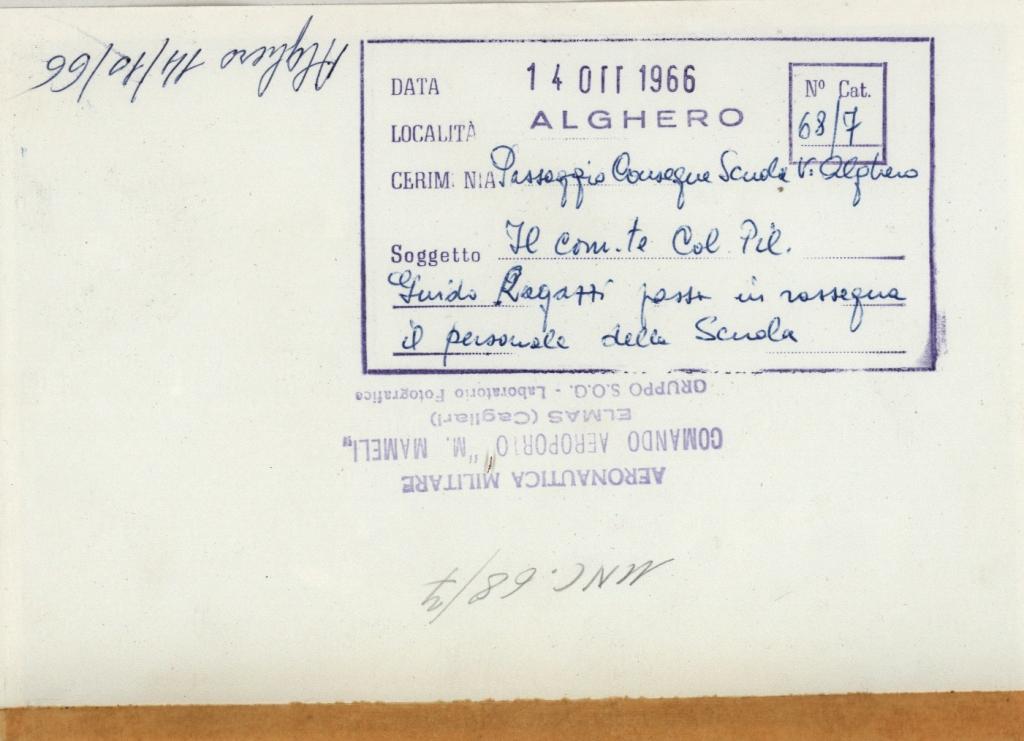 Alghero 14/10/66
DATA 14 OTT 1966
Nº Cat.
68/7
LOCALITÀ ALGHERO
CERIM NIA Passaggio Consegne Scuola V. Alghero
Soggetto Il com.te Col. Pil.
Guido Ragazzi passa in rassegna
il personale della Scuola
AERONAUTICA MILITARE
COMANDO AEROPORTO "M. MAMELI"
ELMAS (Cagliari)
GRUPPO S.O.O. - Laboratorio Fotografico
UNC. 68/7